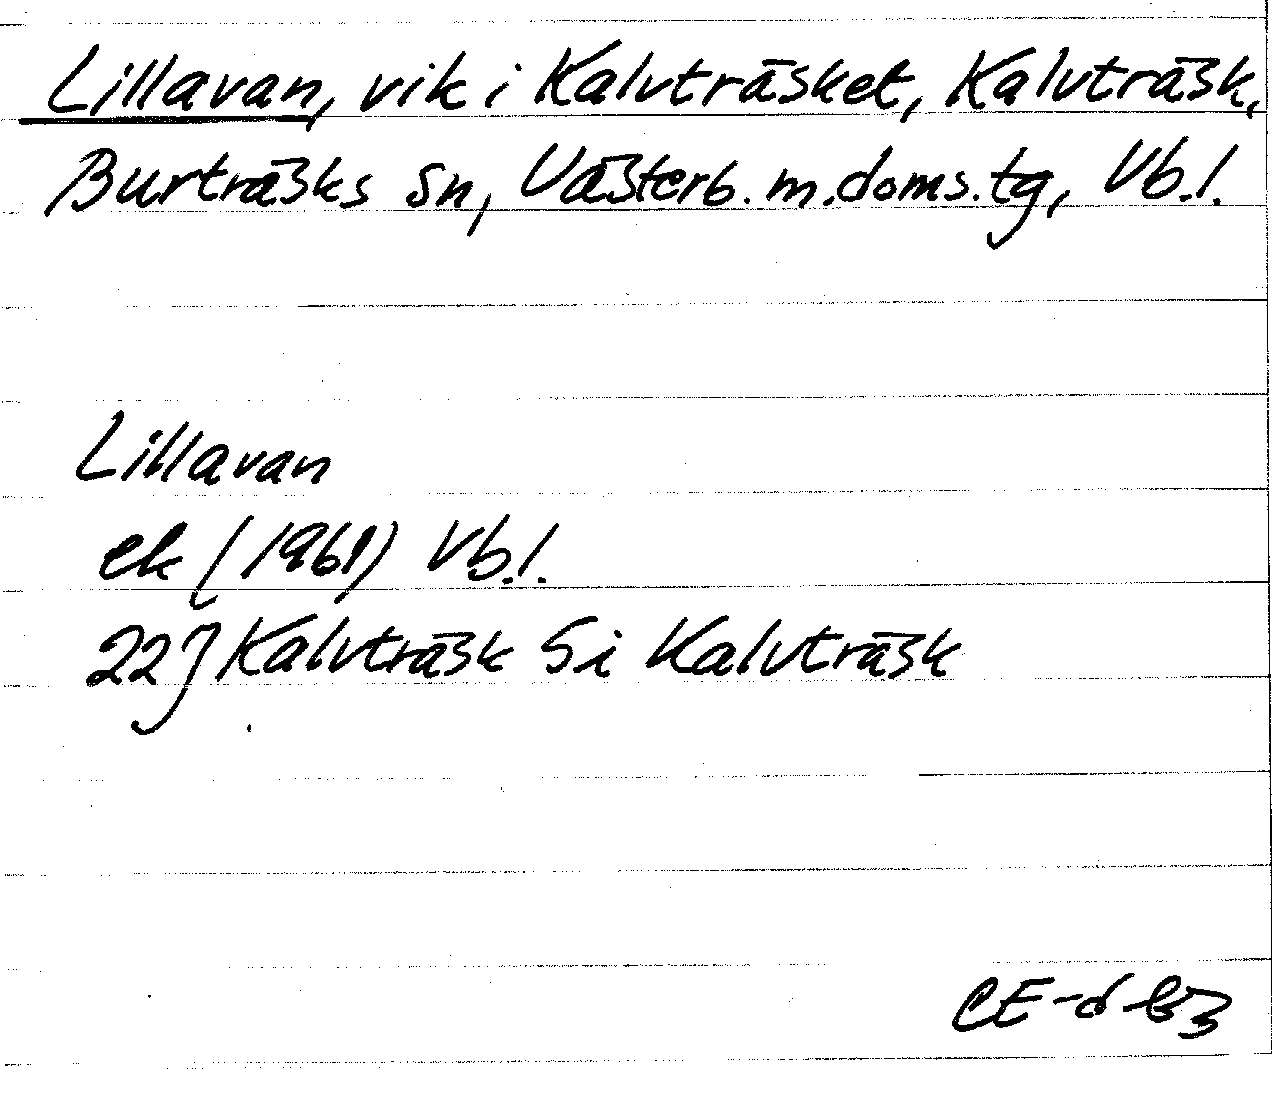 Lillavan, vik i Kalvträsket, Kalvträsk,
Burträsks sn, Västerb. m. doms. tg, Vb.l.
Lillavan
ek (1961) Vb.l.
22J Kalvträsk Si Kalvträsk